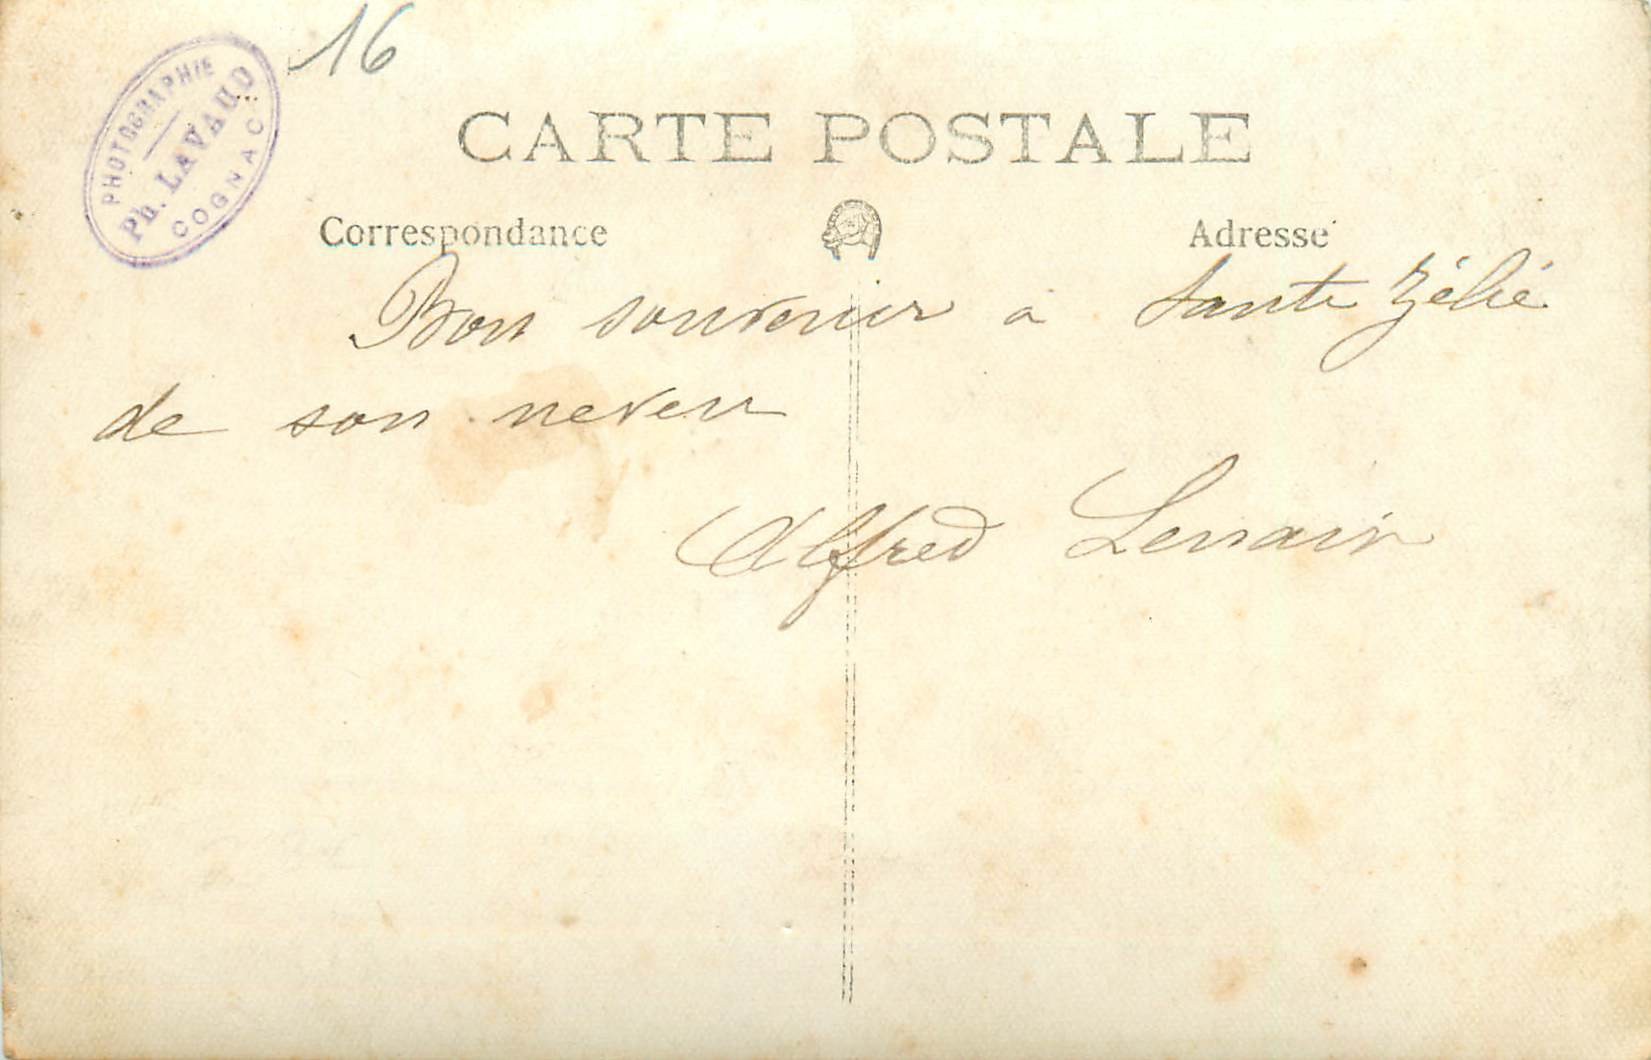 16
PHOTOGRAPHIE
Ph. LAVAUD
COGNAC
CARTE POSTALE
Correspondance
Adresse
Bon souvenir a tante Zélie
de son neveu
Alfred